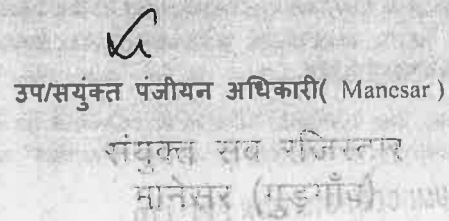 उप/सयुंक्त पंजीयन अधिकारी( Manesar )
संयुक्त सब रजिस्टार
मानेसर (गुड़गाँव)